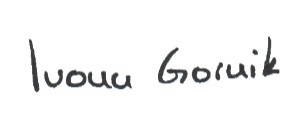 Ivona Gornik